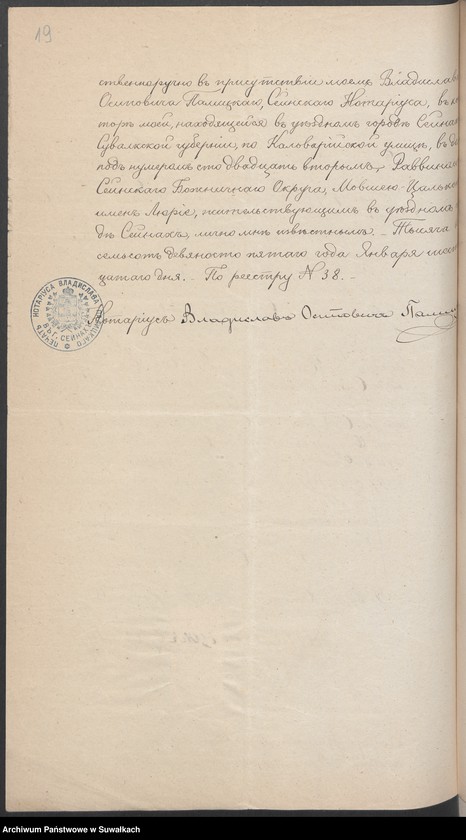 19
ственноручно въ присутствіи моемъ Владислав
Осиповича Палицкаго, Сейнскаго Нотаріуса, въ
торѣ моей, находящейся въ уѣздномъ городѣ Сейна
Сувалкской губерніи, по Кальварійской улицѣ, въ
подъ нумеромъ сто двадцать вторымъ, Раввином
Сейнскаго Божничнаго Округа, Мовшею-
Люріе, жительствующимъ въ уѣздномъ
дѣ Сейнахъ, лично мнѣ извѣстнымъ. Тысяча
семьсотъ девяносто пятаго года Января
цатаго дня. - По реестру № 38. -
Нотаріусъ Владиславъ Осиповичъ
НОТАРІУСА ВЛАДИСЛАВА ПАЛИЦКАГО ПЕЧАТЬ
ВЪ Г. СЕЙНАХЪ
Archiwum Państwowe w Suwałkach